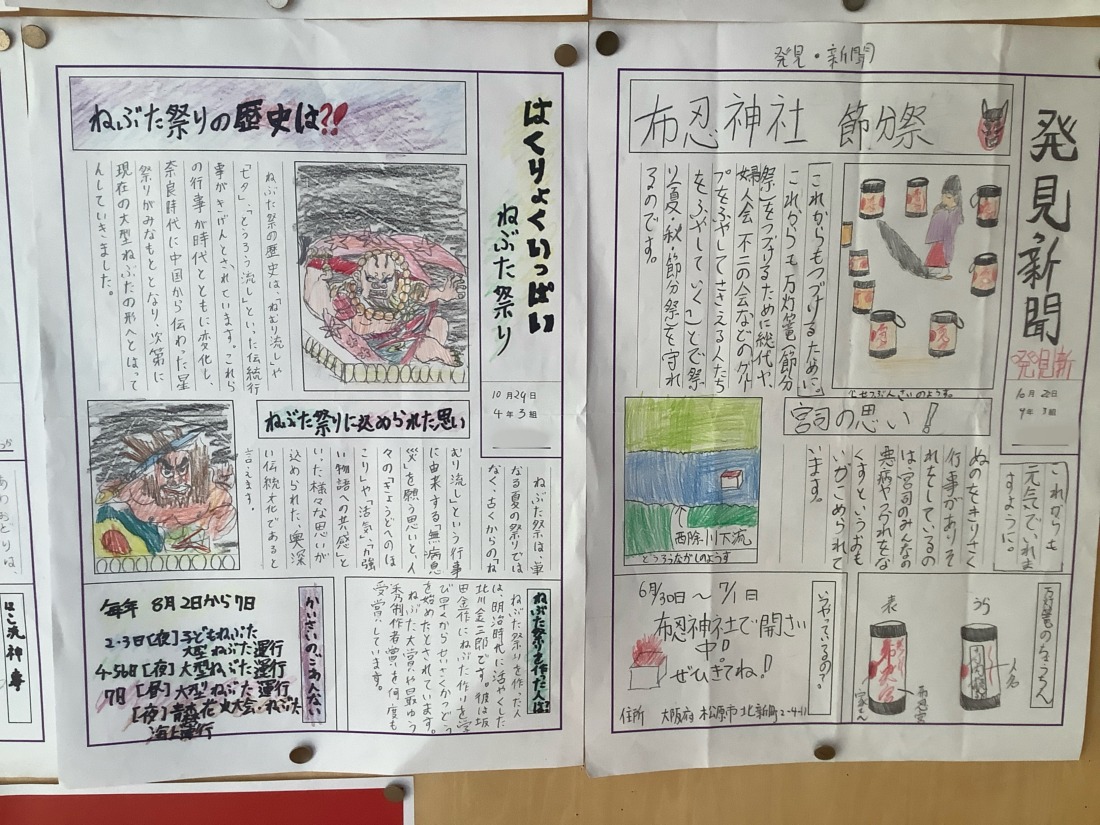 はくりょくいっぱい
ねぶた祭り
10月29日
4年3組
ねぶた祭りの歴史は?!
ねぶた祭の歴史は、「ねむり流し」や
「七夕」、「とうろう流し」といった伝統行
事がきげんとされています。これら
の行事が時代とともに変化し、
奈良時代に中国から伝わった星
祭りがみなもととなり、次第に
現在の大型ねぶたの形へとはって
んしていきました。
ねぶた祭りに込められた思い
ねぶた祭は、単
なる夏の祭りでは
なく、古くからのね
むり流しという行事
に由来する「無病息
災」を願う思いと、人
々の「ぎょうどへのほ
こり」や「活気」、力強
い物語への共感と
いった様々な思いが
込められた、奥深
い伝統文化であると
言えます。
ねぶた祭りを作った人は?
ねぶた祭りを作った人
は、明治時代に活やくした
北川金三郎です。彼は坂
田金作にねぶた作りを学
び早くからせいさくかつどう
を始めたとされています。
ねぶた大賞や最ゆう
秀制作者賞を何度も
受賞しています。
かいさいのごあんない
毎年 8月2日から7日
2-3日[夜]子どもねぶた
大型ねぶた運行
4・5・6日[夜]大型ねぶた運行
7日[昼]大型ねぶた運行
[夜]青森花火大会・ねぶた
海上運行
発見・新聞
発見新聞
発見新
10月
4年3組
布忍神社 節分祭
これからもつづけるために。
これからも万灯篭(節分
祭)をつづけるために総代や、
婦人会、不二の会などのグルー
プをふやしてささえる人たち
をふやしていくことで祭
り(夏・秋・節分祭)を守れ
るのです。
せつぶんさいのようす。
これからも
元気でいれま
すように。
宮司の思い!
ぬのをきりさく
行事がありそ
れをしているの
は、宮司のみんなの
悪病やケガれをな
くすというおも
いがこめられて
います。
西除川下流
とうろうながしのようす
万灯篭のちょうちん
うら
人名
表
いつやっているの?
6/30日〜7/1日
布忍神社で開さい
中!!
ぜひきてね!
住所 大阪府松原市北新町2-4-11
はこ洗神事